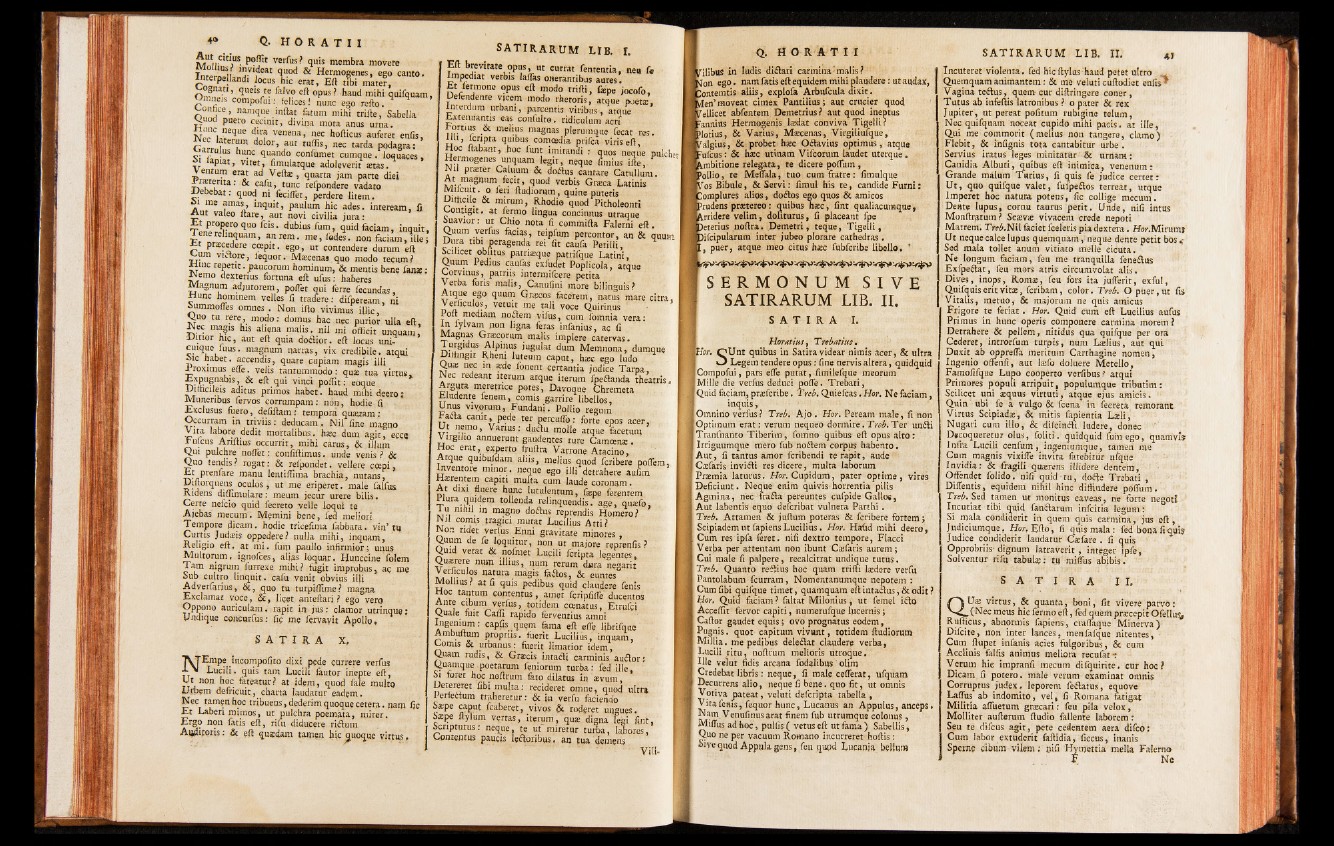 40 Q. HORATII
Aut citius possit versus? quis membra movere
Mollius? invideat quod & Hermogenes, ego canto.
Interpellandi locus hic erat, Est tibi mater,
Cognati, queis te salvo est opus? haud mihi quisquam,
Omneis composui: felices! nunc ego resto.
Confice, namque instat fatum mihi triste, Sabella
Quod puero cecinit, divina mota anus urna.
Hunc neque dira venena, nec hosticus auferet ensis,
Nec laterum dolor, aut tussis, nec tarda podagra:
Garrulus hunc quando consumet cumque. loquaces,
Si sapiat, vitet, simulatque adoleverit ætas.
Ventum erat ad Vestæ, quarta jam parte diei
Præterita: & casu, tunc respondere vadato
Debebat: quod ni fecisset, perdere litem.
Si me amas, inquit, paulum hic ades. inteream, si
Aut valeo stare, aut novi civilia jura:
Et propero quo scis. dubius sum, quid faciam, inquit,
Tene relinquam, an rem. me, sudes. non faciam, ille;
Et præcedere cœpit. ego, ut contendere durum est
Cum victore, sequor. Mæcenas quo modo tecum?
Hinc repetit. paucorum hominum, & mentis bene sanæ:
Nemo dexterius fortuna est usus: haberes
Magnum adjutorem, posset qui ferre secundas,
Hunc hominem velles si tradere: dispeream, ni
Summosses omnes. Non isto vivimus illic,
Quo tu rere, modo: domus hac nec purior ulla est,
Nec magis his aliena malis. nil mi officit unquam,
Ditior hic, aut est quia doctior. est locus uni-
cuique suus. magnum narras, vix credibile. atqui
Sic habet. accendis, quare cupiam magis illi
Proximus esse. velis tantummodo: quæ tua virtus,
Expugnabis, & est qui vinci possit: eoque
Difficileis aditus primos habet. haud mihi deero:
Muneribus servos corrumpam: non, hodie si
Exclusus fuero, desistam: tempora quæram:
Occurram in triviis: deducam. Nil sine magno
Vita labore dedit mortalibus. hæc dum agit, ecce
Fuscus Aristius occurrit, mihi carus, & illum
Qui pulchre nosset: consistimus. unde venis? &
Quo tendis? rogat: & respondet. vellere cœpi,
Et prensare manu lentissima brachia, nutans,
Distorquens oculos, ut me eriperet. male salsus
Ridens dissimulare: meum jecur urere bilis.
Certe nescio quid secreto velle loqui te
Ajebas mecum. Memini bene, sed meliori
Tempore dicam. hodie tricesima sabbata. vin' tu
Curtis Judæis oppedere? nulla mihi, inquam,
Religio est. at mi. sum paullo infirmior; unus
Multorum. ignosces, alias loquar. Hunccine solem
Tam nigrum surrexe mihi? fugit improbus, ac me
Sub cultro linquit. casu venit obvius illi
Adversarius, &, quo tu turpissime? magna
Exclamat voce, &, licet antestari? ego vero
Oppono auriculam. rapit in jus: clamor utrinque:
Undique concursus: sic me servavit Apollo.
SATIRA X.
NEmpe incomposito dixi pede currere versus
Lucili. quis tam Lucili fautor inepte est,
Ut non hoc fateatur? at idem, quod sale multo
Urbem defricuit, charta laudatur eadem.
Nec tamen hoc tribuens, dederim quoque cetera. nam hac
Et Laberi mimos, ut pulchra poemata, mirer.
Ergo non satis est, risu diducere rictum
Auditoris: & est quædam tamen hic quoque virtus.
SATIRARUM LIB. I.
Est brevitate opus, ut currat sententia, neu se
Impediat verbis lassas onerantibus aures.
Et sermone opus est modo tristi, sæpe jocoso,
Defendente vicem modo rhetoris, atque poetæ,
Interdum urbani, parcentis viribus, atque
Extenuantis eas consulto. ridiculum acri
Fortius & melius magnas plerumque secat res.
Illi, scripta quibus comœdia prisca viris est,
Hoc stabant, hoc sunt imitandi: quos neque pulcher
Hermogenes unquam legit, neque simius iste,
Nil præter Calvum & doctus cantare Catullum.
At magnum fecit, quod verbis Græca Latinis
Miscuit. o seri studiorum, quine puteris
Difficile & mirum, Rhodio quod Pitholeonti
Contigit. at sermo lingua concinnus utraque
Suavior: ut Chio nota si commista Falerni est.
Quum versus facias, teipsum percontor, an & quum
Dura tibi peragenda rei sit causa Petilli,
Scilicet oblitus patriæque patrisque Latini,
Quum Pedius causas exsudet Poplicola, atque
Corvinus, patriis intermiscere petita
Verba foris malis, Canusini more bilinguis?
Atque ego quum Græcos facerem, natus mare citra,
Versiculos, vetuit me tali voce Quirinus
Post mediam noctem visus, cum somnia vera:
In sylvam non ligna feras insanius, ac si
Magnas Græcorum malis implere catervas.
Turgidus Alpinus jugulat dum Memnona, dumque
Diffingit Rheni luteum caput, hæc ego ludo
Quæ nec in æde sonent certantia judice Tarpa,
Nec redeant iterum atque iterum spectanda theatris.
Arguta meretrice potes, Davoque Chremeta
Eludente senem, comis garrire libellos,
Unus vivorum, Fundani. Pollio regum
Facta canit, pede ter percusso: forte epos acer,
Ut nemo, Varius: ductu molle atque facetum
Virgilio annuerunt gaudentes rure Camœnæ.
Hoc erat, experto frustra Varrone Atacino,
Atque quibusdam aliis, melius quod scribere possem,
Inventore minor. neque ego illi detrahere ausim
Hærentem capiti multa cum laude coronam.
At dixi fluere hunc lutulentum, sæpe ferentem
Plura quidem tollenda relinquendis. age, quæso,
Tu nihil in magno doctus reprendis Homero?
Nil comis tragici mutat Lucilius Atti?
Non ridet versus Enni gravitate minores,
Quum de se loquitur, non ut majore reprensis?
Quid vetat & nosmet Lucili scripta legentes,
Quærere num illius, num rerum dura negarit
Versiculos natura magis factos, & euntes
Mollius? at si quis pedibus quid claudere senis
Hoc tantum contentus, amet scripsisse ducentos
Ante cibum versus, totidem cœnatus, Etrusci
Quale fuit Cassi rapido ferventius amni
Ingenium: capsis quem fama est esse librisque
Ambustum propriis. fuerit Lucilius, inquam,
Comis & urbanus: fuerit limatior idem,
Quam rudis, & Græcis intacti carminis auctor:
Quamque poetarum seniorum turba: sed ille,
Si foret hoc nostrum fato dilatus in ævum,
Detereret sibi multa: recideret omne, quod ultra
Perfectum traheretur: & in versu faciendo
Sæpe caput scaberet, vivos & roderet ungues.
Sæpe stylum vertas, iterum, quæ digna legi sint,
Scripturus: neque, te ut miretur turba, labores,
Contentus paucis lectoribus. an tua demens
Vili-
Q. HORATII
Vilibus in ludis dictari carmina malis?
Non ego. nam satis est equidem mihi plaudere: ut audax,
Contemtis aliis, explosa Arbuscula dixit.
Men' moveat cimex Pantilius; aut crucier quod
Vellicet absentem Demetrius? aut quod ineptus
Fannius Hermogenis lædat conviva Tigelli?
Plotius, & Varius, Mæcenas, Virgiliusque,
Valgius, & probet hæc Octavius optimus, atque
Fuscus: & hæc utinam Viscorum laudet uterque.
Ambitione relegata, te dicere possum,
Pollio, te Messala, tuo cum fratre: simulque
Vos Bibule, & Servi: simul his te, candide Furni:
Complures alios, doctos ego quos & amicos
Prudens prætereo: quibus hæc, sint qualiacumque,
Arridere velim, doliturus, si placeant spe
Deterius nostra. Demetri, teque, Tigelli,
Discipularum inter jubeo plorare cathedras.
I, puer, atque meo citus hæc subscribe libello.
SERMONUM SIVE
SATIRARUM LIB. II.
SATIRA I.
Horatius, Trebatius.
Hor. SUnt quibus in Satira videar nimis acer, & ultra
Legem tendere opus: sine nervis altera, quidquid
Composui, pars esse putat, similesque meorum
Mille die versus deduci posse. Trebati,
Quid faciam, præscribe. Treb. Quiescas. Hor. Ne faciam,
inquis,
Omnino versus? Treb. Ajo. Hor. Peream male, si non
Optimum erat: verum nequeo dormire. Treb. Ter uncti
Transnanto Tiberim, somno quibus est opus alto:
Irriguumque mero sub noctem corpus habento.
Aut, si tantus amor scribendi te rapit, aude
Cæsaris invicti res dicere, multa laborum
Præmia laturus. Hor. Cupidum, pater optime, vires
Deficiunt. Neque enim quivis horrentia pilis
Agmina, nec fracta pereuntes cuspide Gallos,
Aut labentis equo describat vulnera Parthi.
Treb. Attamen & justum poteras & scribere fortem;
Scipiadem ut sapiens Lucilius. Hor. Haud mihi deero,
Cum res ipsa feret. nisi dextro tempore, Flacci
Verba per attentam non ibunt Cæsaris aurem:
Cui male si palpere, recalcitrat undique tutus.
Treb. Quanto rectius hoc quam tristi lædere versu
Pantolabum scurram, Nomentanumque nepotem:
Cum sibi quisque timet, quamquam est intactus, & odit?
Hor. Quid faciam? saltat Milonius, ut semel icto
Accessit fervor capiti, numerusque lucernis;
Castor gaudet equis; ovo prognatus eodem,
Pugnis. quot capitum vivunt, totidem studiorum
Millia. me pedibus delectat claudere verba,
Lucili ritu, nostrum melioris utroque.
Ille velut fidis arcana sodalibus olim
Credebat libris: neque, si male cesserat, usquam
Decurrens alio, neque si bene. quo fit, ut omnis
Votiva pateat, veluti descripta tabella,
Vita senis, sequor hunc, Lucanus an Appulus, anceps.
Nam Venusinus arat finem sub utrumque colonus,
Missus ad hoc, pulsis (vetus est ut fama) Sabellis,
Quo ne per vacuum Romano incurreret hostis:
Sive quod Appula gens, seu quod Lucania bellum
SATIRARUM LIB. II. 41
Incuteret violenta. sed hic stylus haud petet ultro
Quemquam animantem: & me veluti custodiet ensis
Vagina tectus, quem cur distringere coner,
Tutus ab infestis latronibus? o pater & rex
Jupiter, ut pereat positum rubigine telum,
Nec quisquam noceat cupido mihi pacis. at ille,
Qui me commorit (melius non tangere, clamo)
Flebit, & insignis tota cantabitur urbe.
Servius iratus leges minitatur & urnam:
Canidia Albuti, quibus est inimica, venenum:
Grande malum Turius, si quis se judice certet:
Ut, quo quisque valet, suspectos terreat, utque
Imperet hoc natura potens, sic collige mecum.
Dente lupus, cornu taurus petit. Unde, nisi intus
Monstratum? Scævæ vivacem crede nepoti
Matrem. Treb. Nil faciet sceleris pia dextera. Hor. Mirum?
Ut neque calce lupus quemquam, neque dente petit bos.
Sed mala tollet anum vitiato melle cicuta.
Ne longum faciam, seu me tranquilla senectus
Exspectat, seu mors atris circumvolat alis.
Dives, inops, Romæ, seu fors ita jusserit, exsul,
Quisquis erit vitæ, scribam, color. Treb. O puer, ut sis
Vitalis, metuo, & majorum ne quis amicus
Frigore te feriat. Hor. Quid cum est Lucilius ausus
Primus in hunc operis componere carmina morem?
Detrahere & pellem, nitidus qua quisque per ora
Cederet, introrsum turpis, num Lælius, aut qui
Duxit ab oppressa meritum Carthagine nomen,
Ingenio offensi, aut læso doluere Metello,
Famosisque Lupo cooperto versibus? atqui
Primores populi arripuit, populumque tributim:
Scilicet uni æquus virtuti, atque ejus amicis.
Quin ubi se a vulgo & scena in secreta remorant
Virtus Scipiadæ, & mitis sapientia Læli,
Nugari cum illo, & discincti ludere, donec
Decoqueretur olus, soliti. quidquid sum ego, quamvis
Infra Lucili censum, ingeniumque, tamen me
Cum magnis vixisse invita fatebitur usque
Invidia: & fragili quærens illidere dentem,
Offendet solido. nisi quid tu, docte Trebati,
Dissentis, equidem nihil hinc diffindere possum.
Treb. Sed tamen ut monitus caveas, ne forte negoti
Incutiat tibi quid sanctarum inscitia legum:
Si mala condiderit in quem quis carmina, jus est,
Judiciumque. Hor. Esto, si quis mala: sed bona si quis
Judice condiderit laudatur Cæsare. si quis
Opprobriis dignum latraverit, integer ipse,
Solventur risu tabulæ: tu missus abibis.
SATIRA II.
QUæ virtus, & quanta, boni, sit vivere parvo:
(Nec meus hic sermo est, sed quem præcepit Ofellus,
Rusticus, abnormis sapiens, crassaque Minerva)
Discite, non inter lances, mensasque nitentes,
Cum stupet insanis acies fulgoribus, & cum
Acclinis falsis animus meliora recusat:
Verum hic impransi mecum disquirite. cur hoc?
Dicam si potero. male verum examinat omnis
Corruptus judex. leporem sectatus, equove
Lassus ab indomito, vel, si Romana fatigat
Militia assuetum græcari: seu pila velox,
Molliter austerum studio fallente laborem:
Seu te discus agit, pete cedentem aera disco:
Cum labor extuderit fastidia, siccus, inanis
Sperne cibum vilem: nisi Hymettia mella Falerno
F Ne